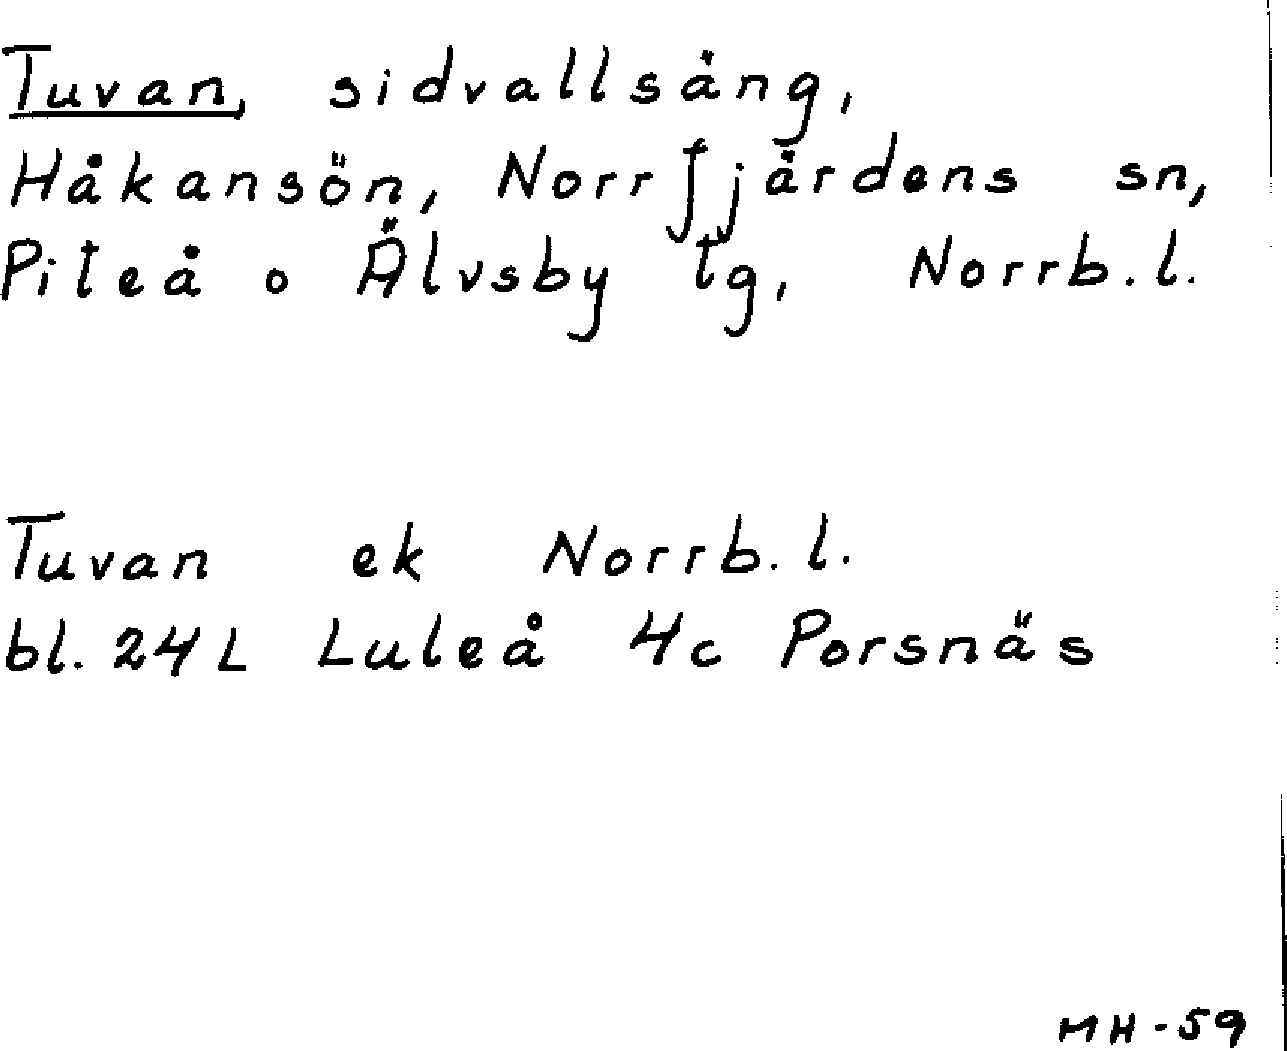 Tuvan, sidvallsäng,
Håkansön, Norrfjärdens sn,
Piteå o Älvsby tg, Norrb.l.
Tuvan ek Norrb.l.
bl. 24L Luleå 4c Porsnäs
MH-59